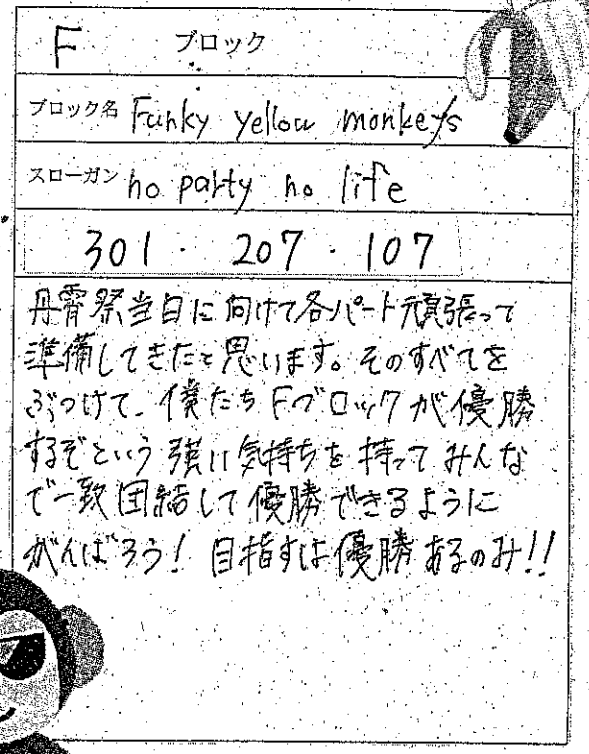 F ブロック
ブロック名 Funky yellow monkeys
スローガン no party no life
301 · 207 · 107
丹霄祭当日に向けて各パート頑張って
準備してきたと思います。そのすべてを
ぶつけて、僕たちFブロックが優勝
するぞという強い気持ちを持ってみんな
で一致団結して優勝できるように
がんばろう! 目指すは優勝あるのみ!!